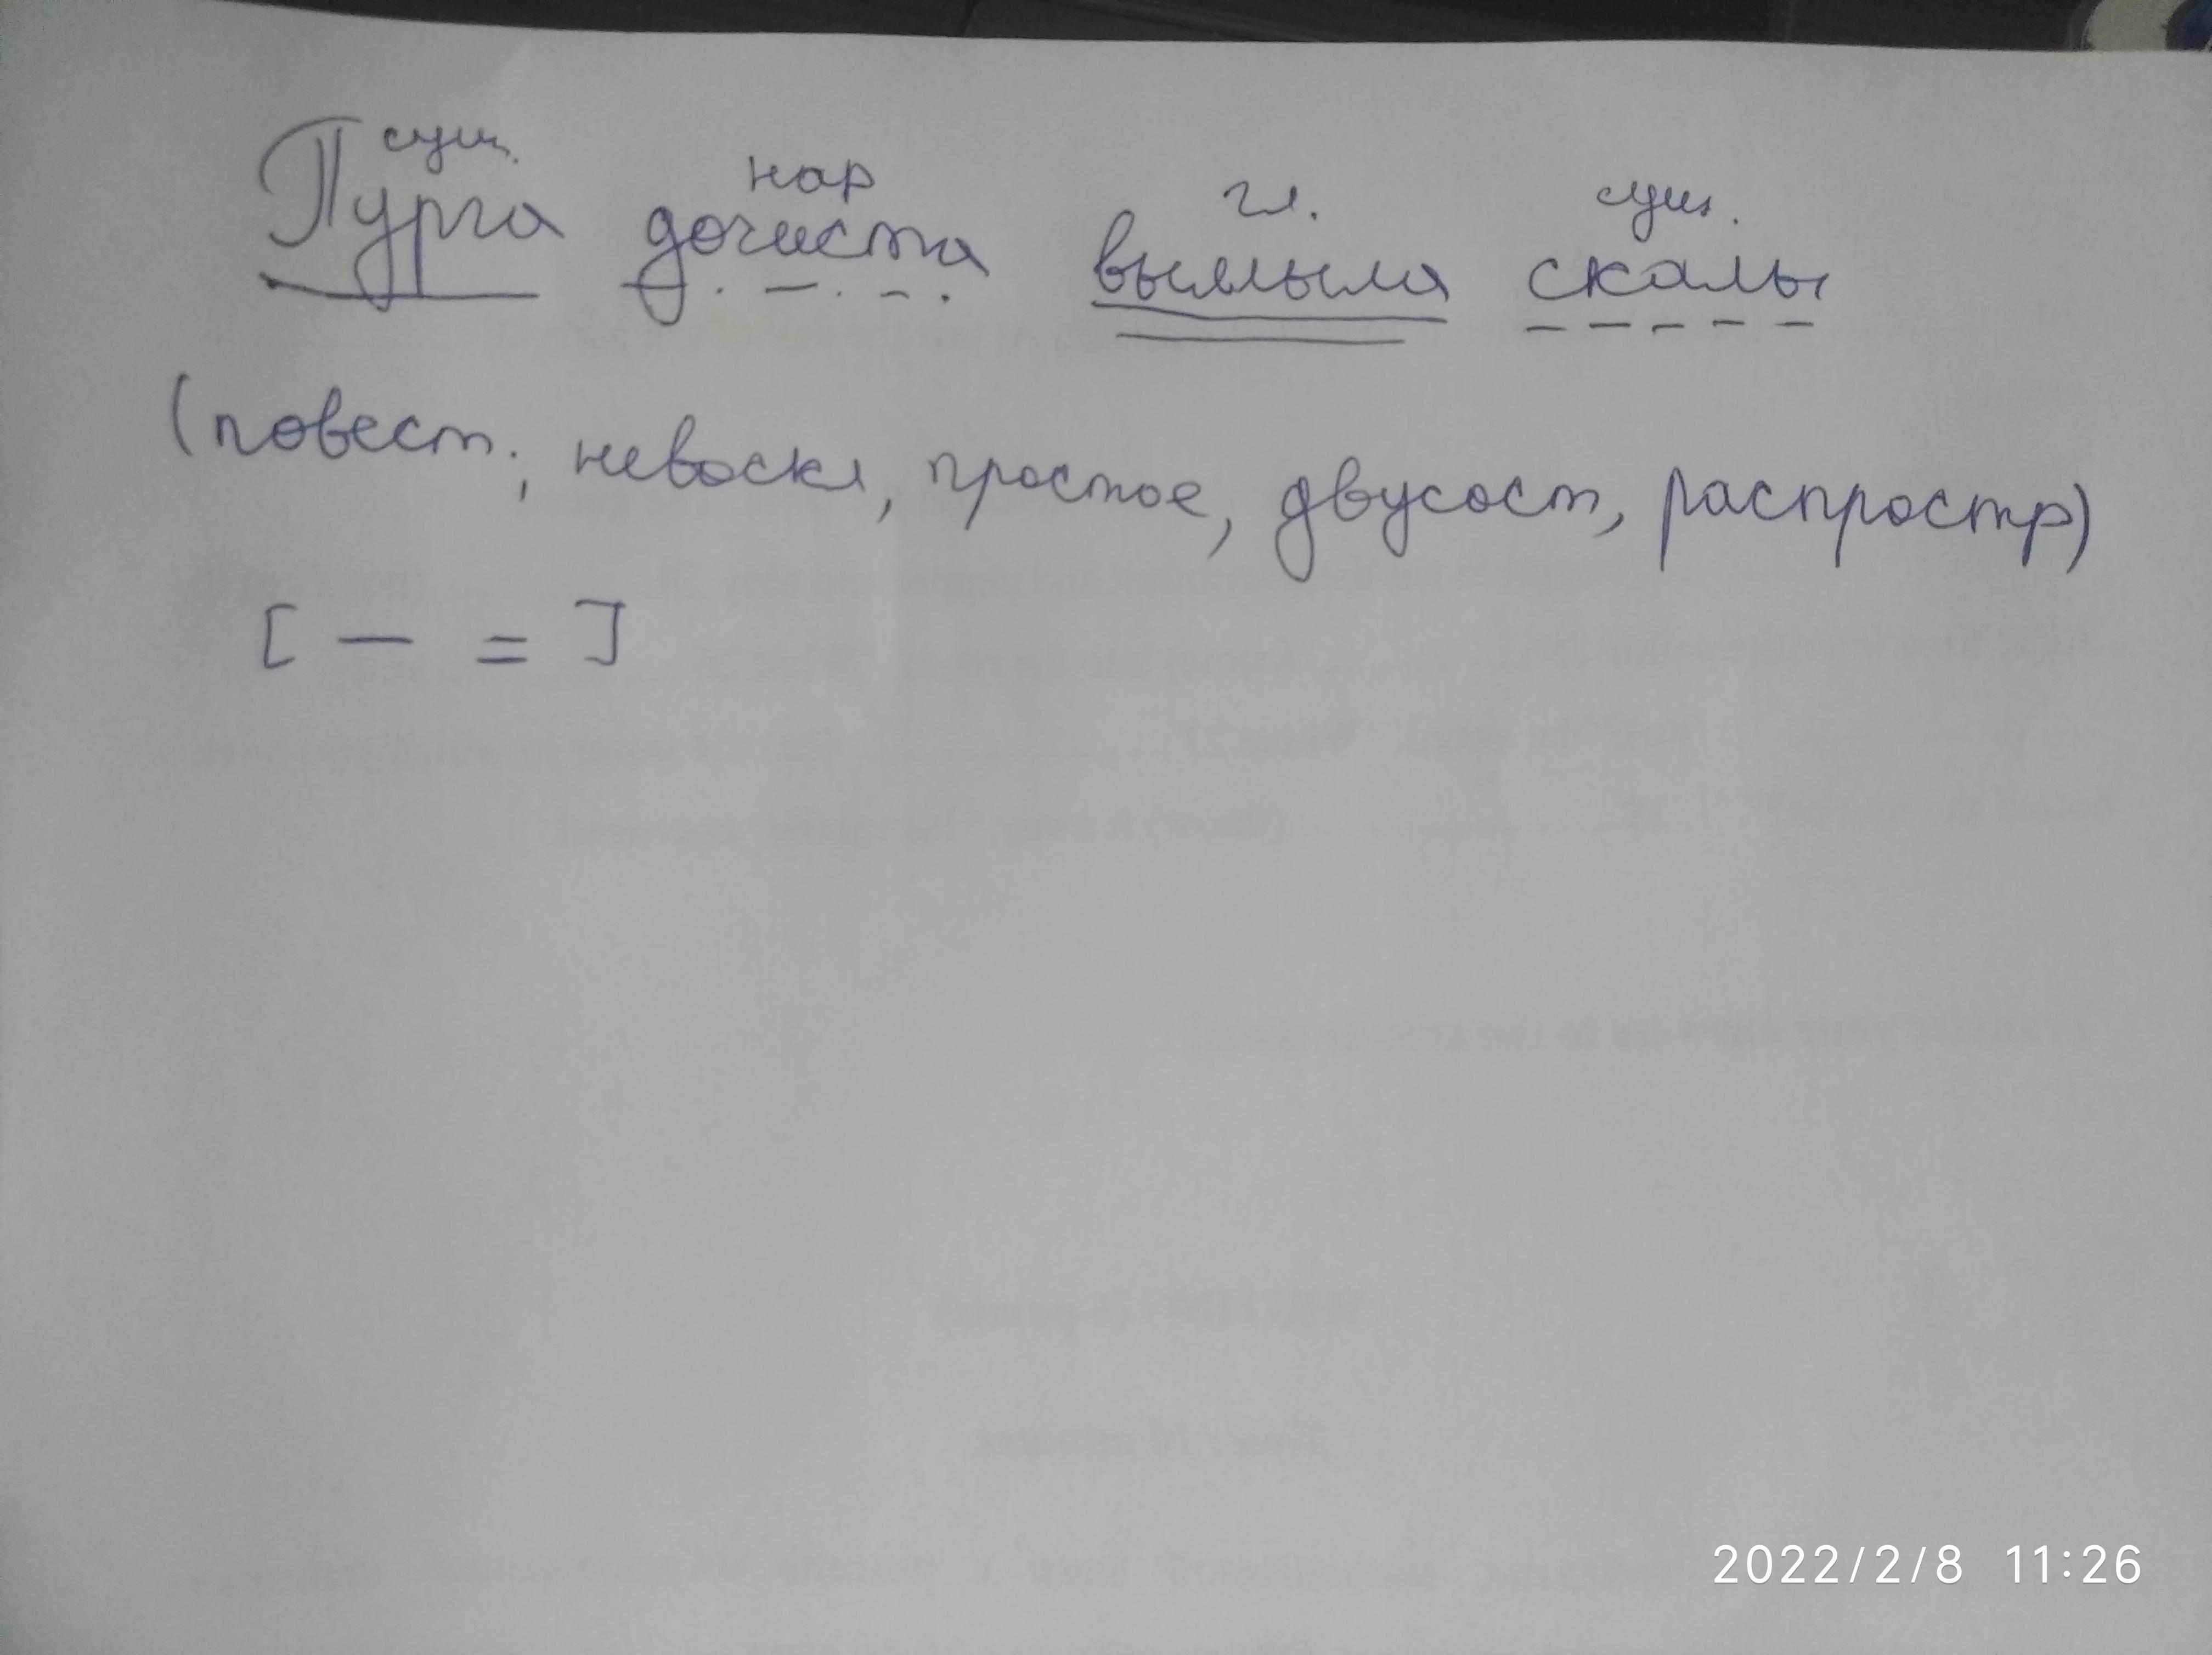 сущ. нар гл. сущ.
Пурга дочиста вымыла скалы
(повест., невоскл, простое, двусост, распростр)
[ — = ]
2022/2/8 11:26